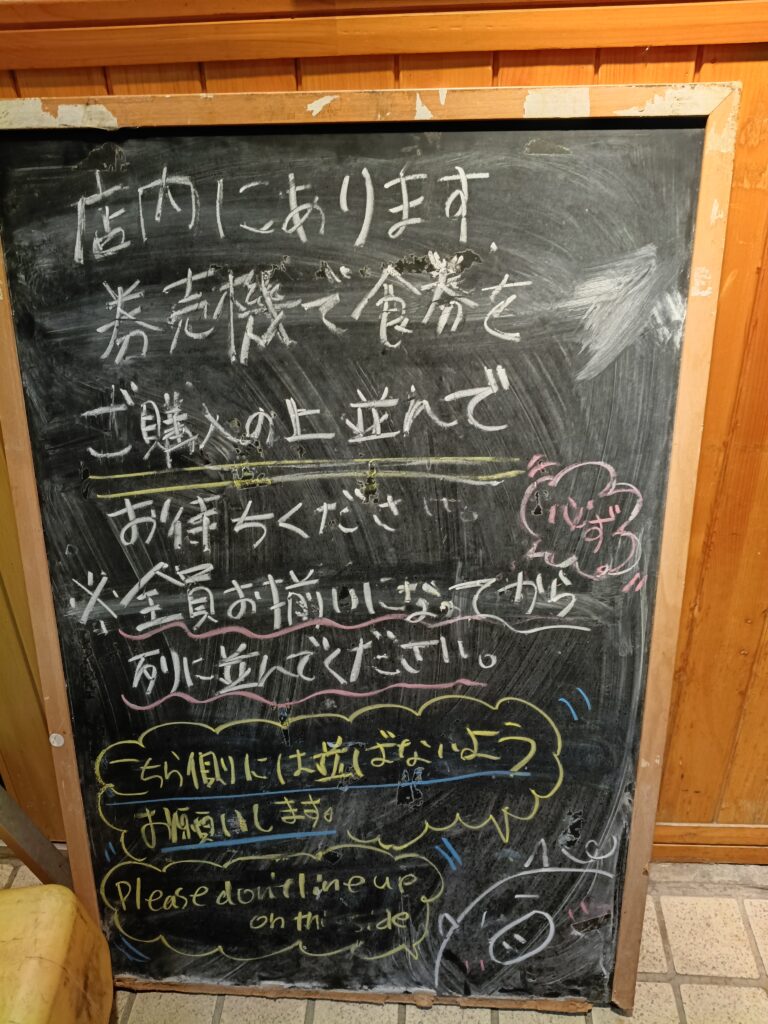 店内にあります
券売機で食券を
ご購入の上並んで
お待ちください。
必ず
※全員お揃いになってから
列に並んでください。
こちら側には並ばないよう
お願いします。
Please don't line up
on this side